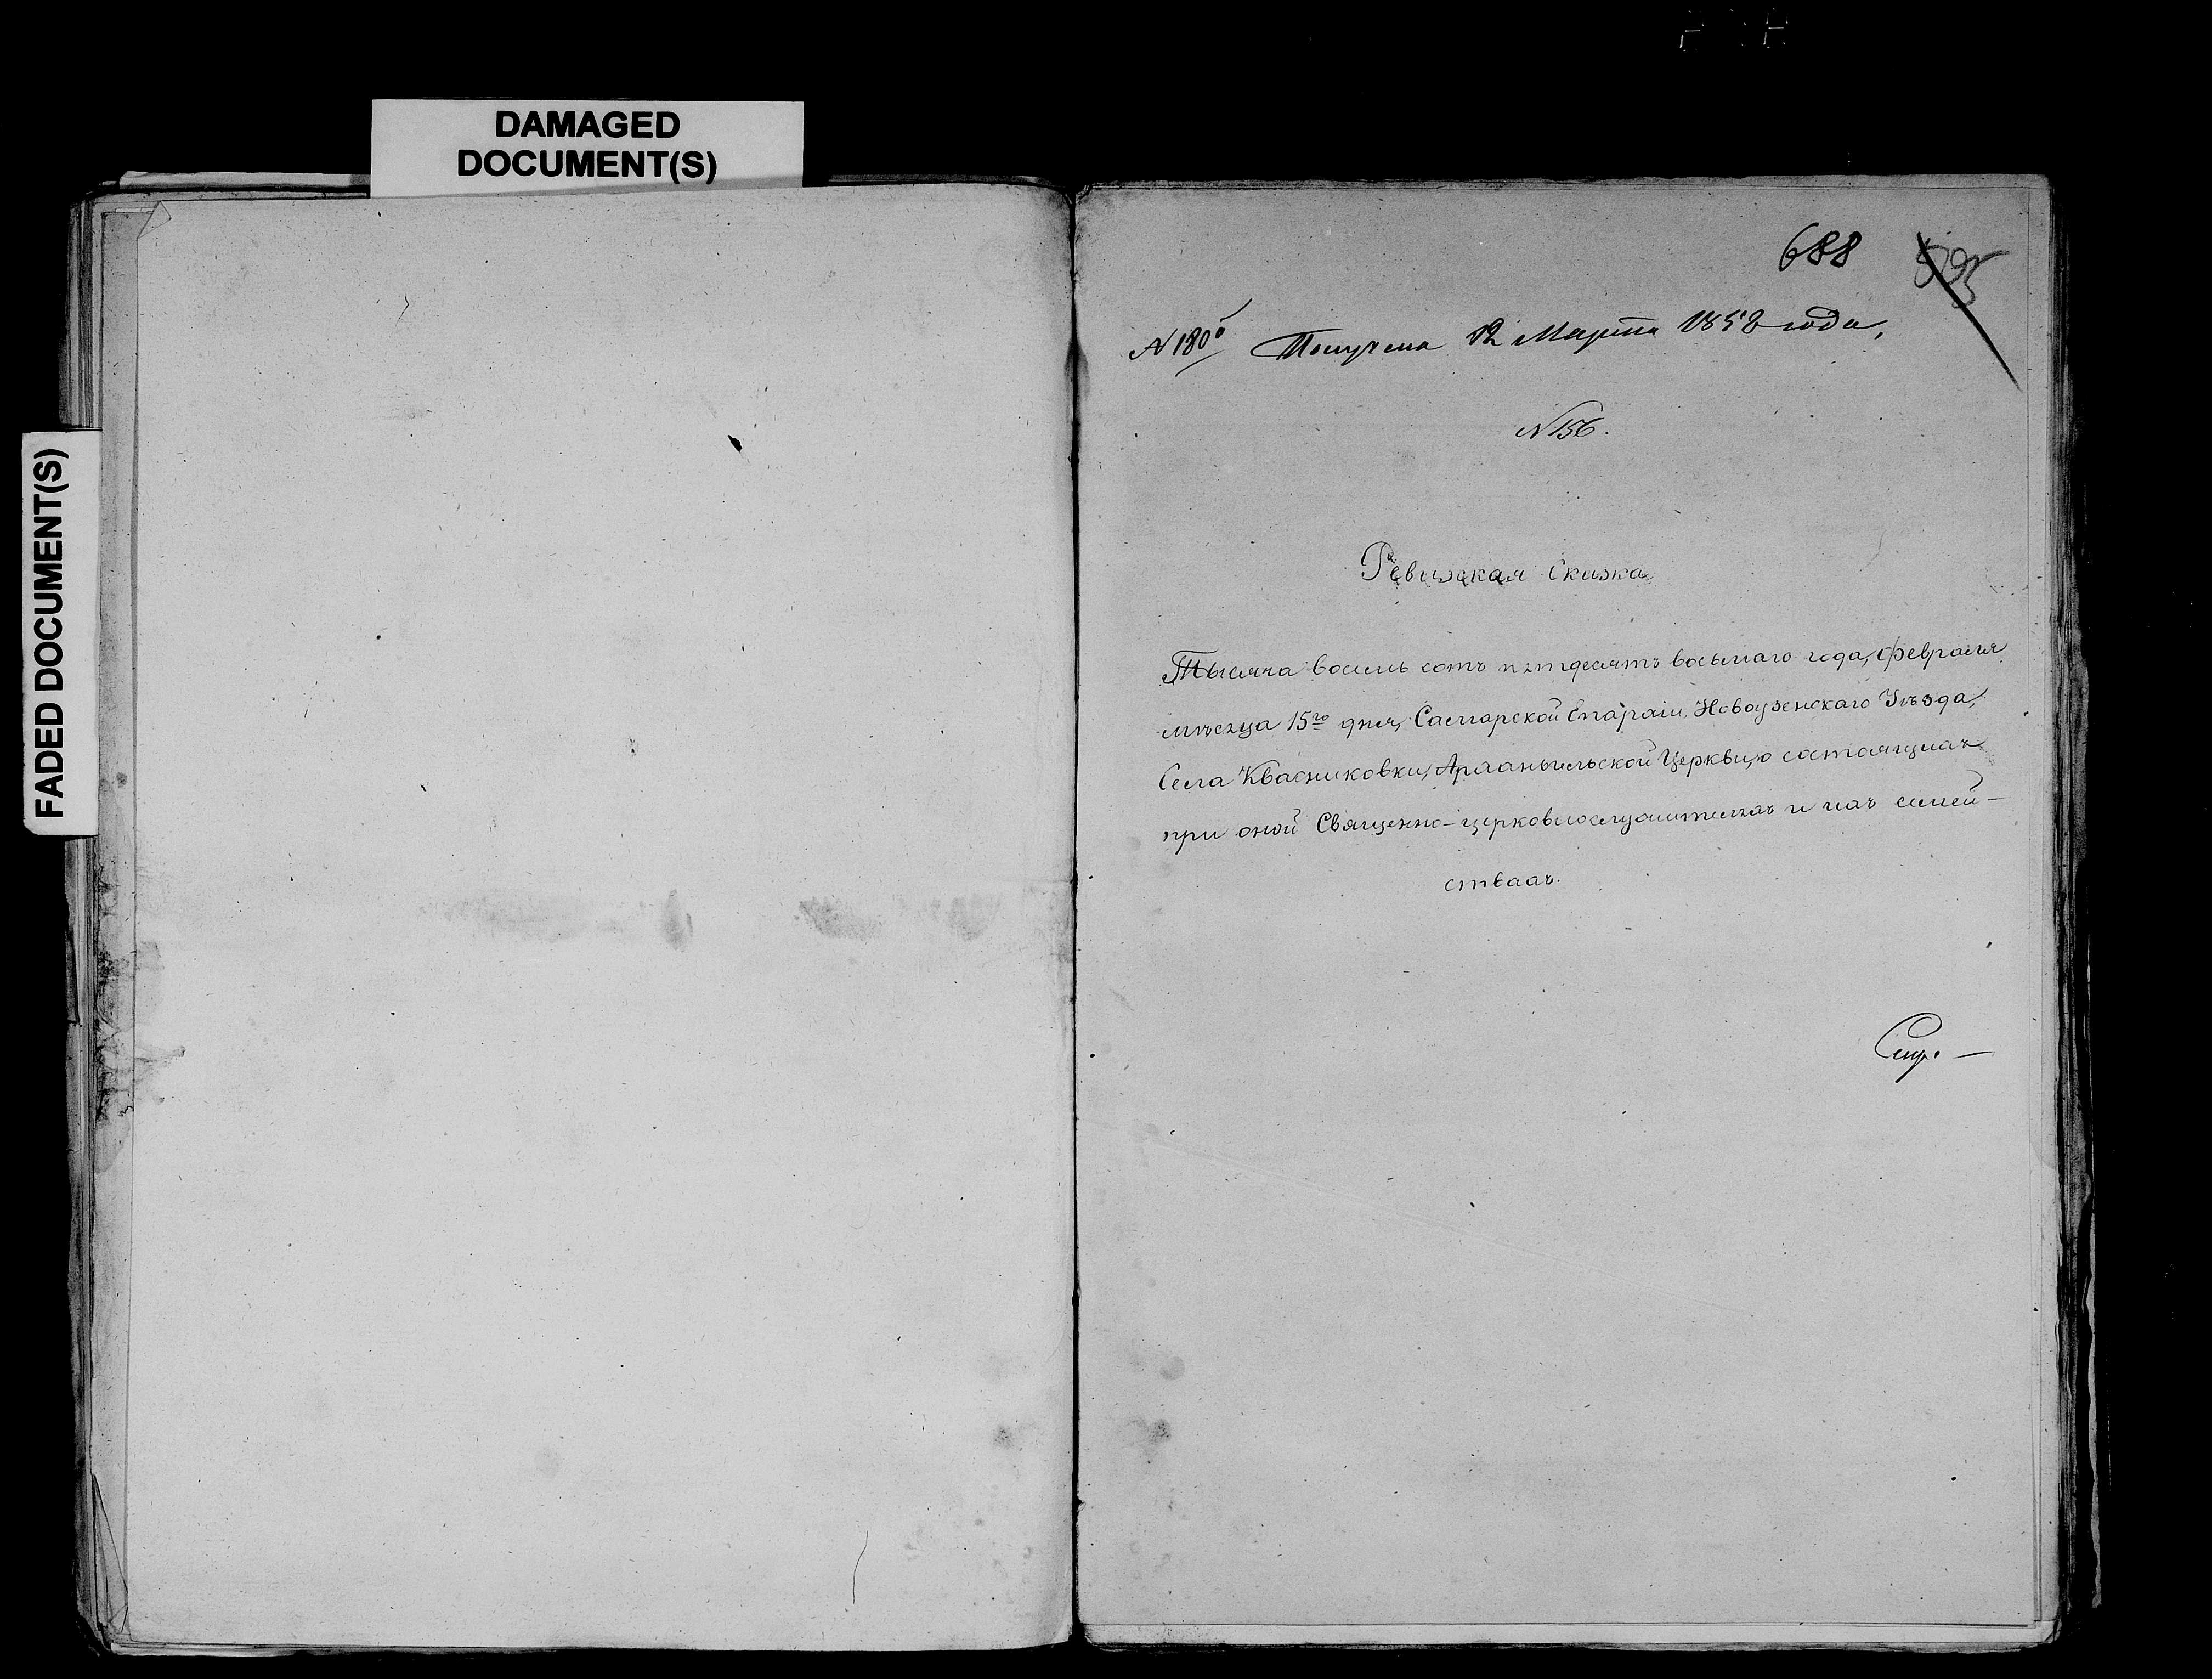 DAMAGED
DOCUMENT(S)
FADED DOCUMENT(S)
688 595
№ 180 Получена 12 Марта 1858 года,
№ 156.
Ревизская Сказка
Тысяча восемь сотъ пятдесятъ восьмаго года, февраля
мѣсяца 15го дня, Самарской Епархіи, Новоузенскаго Уѣзда,
Села Квасниковки, Архангельской Церкви, о состоящихъ
при оной Священно-церковнослужителяхъ и ихъ семей-
ствахъ.